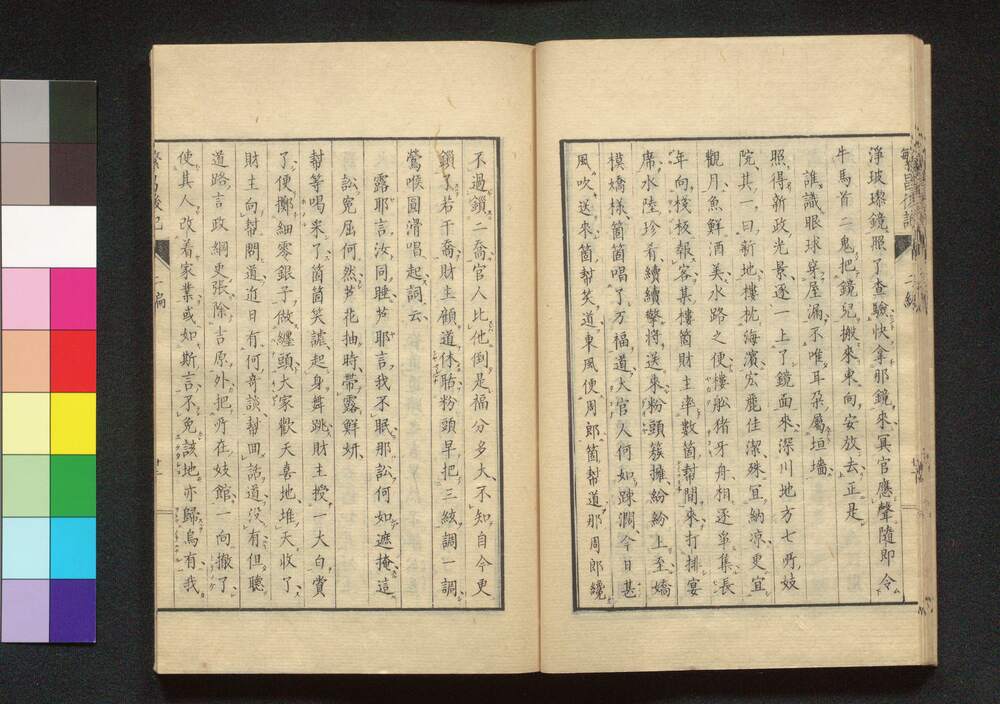 淨玻瓈鏡照了査驗快拿那鏡來冥官應聲隨即令
牛馬首二鬼把鏡兒搬來東向安放去正是
誰識眼球穿屋漏不唯耳朶屬垣墻
照得新政光景逐一上了鏡面來深川地方七所妓
院其一曰新地樓枕海濱宏麗佳潔殊宜納凉更宜
觀月魚鮮酒美水路之便樓船猪牙舟相逐畢集長
年向棧板報客某樓箇財主率數箇幇閒來打排宴
席水陸珍看續續擎將送來粉頭簇擁紛紛上至嬌
模嬌樣箇箇唱了万福道大官人何如踈濶今日甚
風吹送來箇幇笑道東風便周郎箇幇道那周郎纔
不過鎖二喬官人比他倒是福分多大不知自今更
鎖了若干喬財主顧道休聒粉頭早把三絃調一調
鶯喉圓滑唱起詞云
露耶言汝同睡芦耶言我不眠那訟何如遮掩這
訟寃屈何然芦花抽時帶露鮮妍
幇等喝采了箇箇笑謔起身舞跳財主授一大白賞
了便擲細零銀子做纏頭大家歡天喜地堆天收了
財主向幇問道近日有何奇談幇回話道没有但聽
道路言政綱更張除吉原外把所在妓館一向撤了
使其人改着家業或如斯言不免該地亦歸烏有我
二編